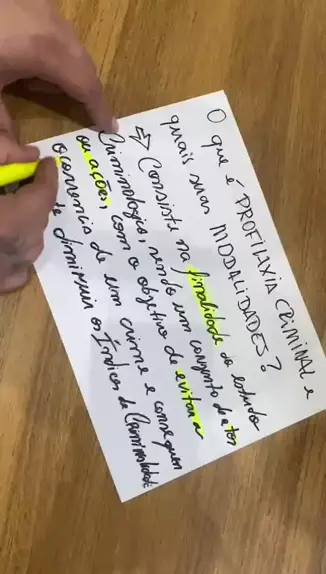 O que é PROFILAXIA CRIMINAL e
quais suas MODALIDADES?
⇒ Consiste na finalidade do estudo
Criminológico, sendo um conjunto de atos
ou ações, com o objetivo de evitar a
ocorrência de um crime e consequen
de diminuir os Índices de Criminalidade